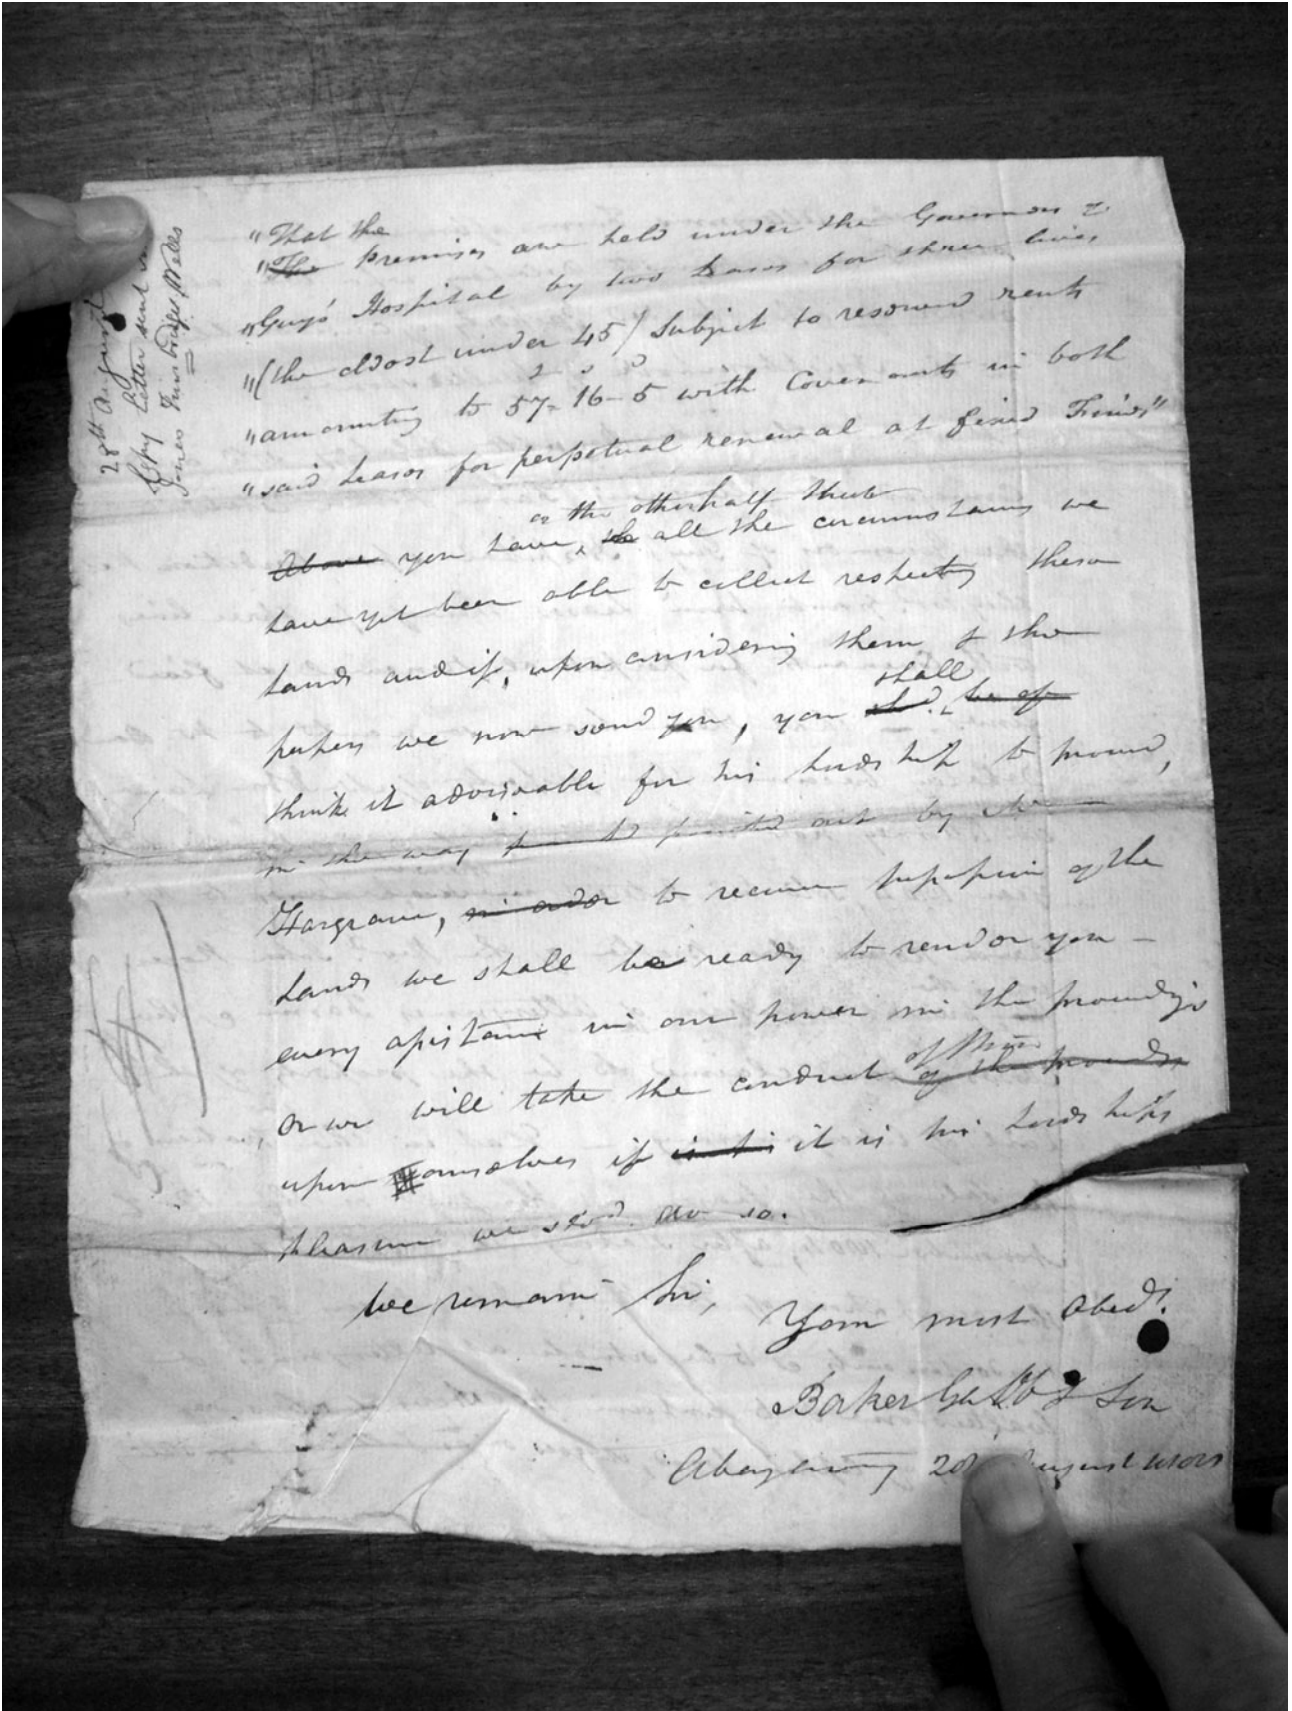 "That the
"The Premises are held under the Governors of
"Guy's Hospital by two Leases for three lives
"(the eldest under 45) Subject to reserved rents
£ s d
"amounting to 57- 16- 5 with Covenants in both
"said Leases for perpetual renewal at fixed Fines"
or the other half sheet
Above you have, the all the circumstances we
have yet been able to collect respecting these
Lands and if, upon considering them & the
shall
papers we now send you, you shd. be of
think it adviseable for his Lordship to proceed,
in the way pointed out by Mr
Hargrave, in order to recover possession of the
Lands we shall be ready to render you –
every assistance in our power in the proceedgs
of them
or we will take the conduct of the proceeds
upon ourselves if it is his Lordships
pleasure we shod. do so.
We remain Sir,
Your most Obedt.
Baker Gabb & Son
Abergavenny 28 August
28th August
Copy Letter sent
Jones Tunbridge Wells